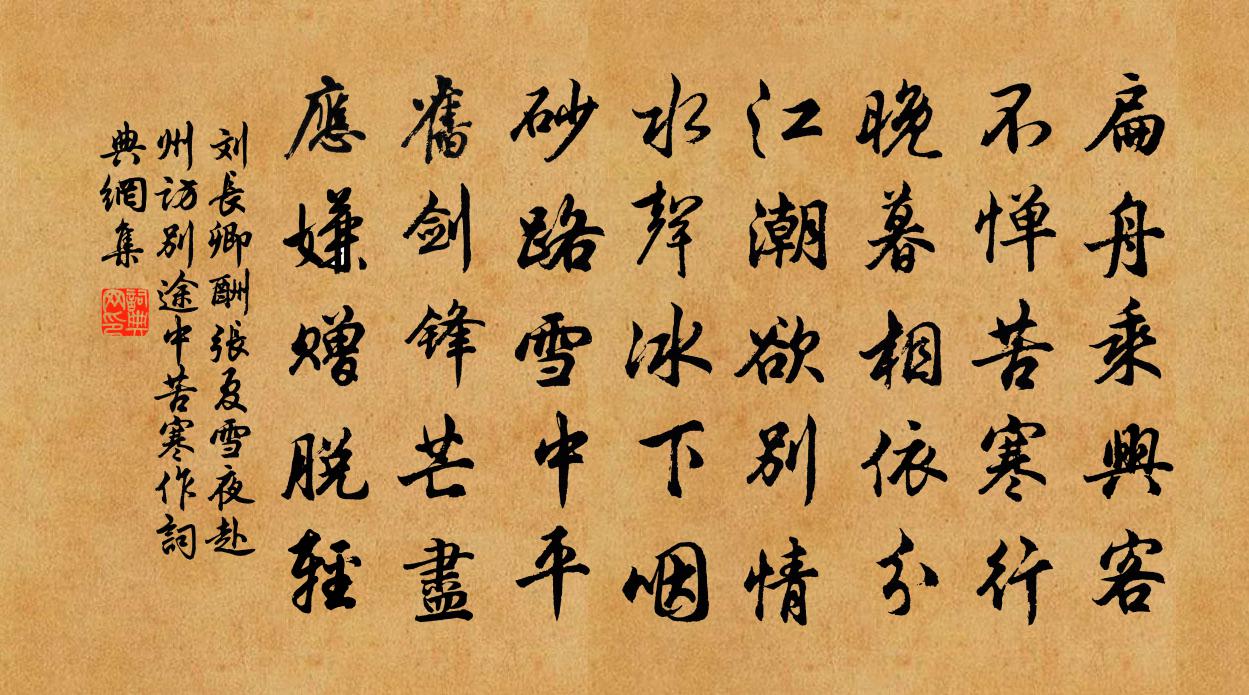 扁舟乘興客
不惮苦寒行
晚暮相依分
江潮欲别情
水聲冰下咽
砂路雪中平
舊剑锋芒盡
應嫌赠脱輕
刘長卿酬张夏雪夜赴
州访别途中苦寒作詞
典網集
詞典网印